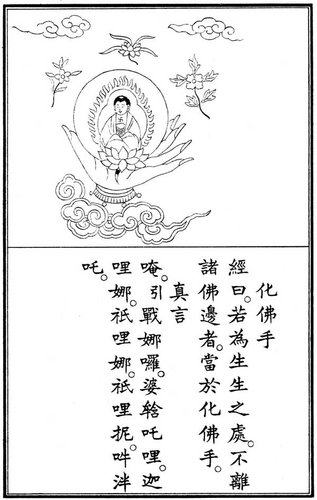 化佛手
經曰。若為生生之處。不離
諸佛邊者。當於化佛手。
真言
唵。引戰娜囉。婆輇吒哩。迦
哩娜。祇哩娜。祇哩抳。吽泮
吒。